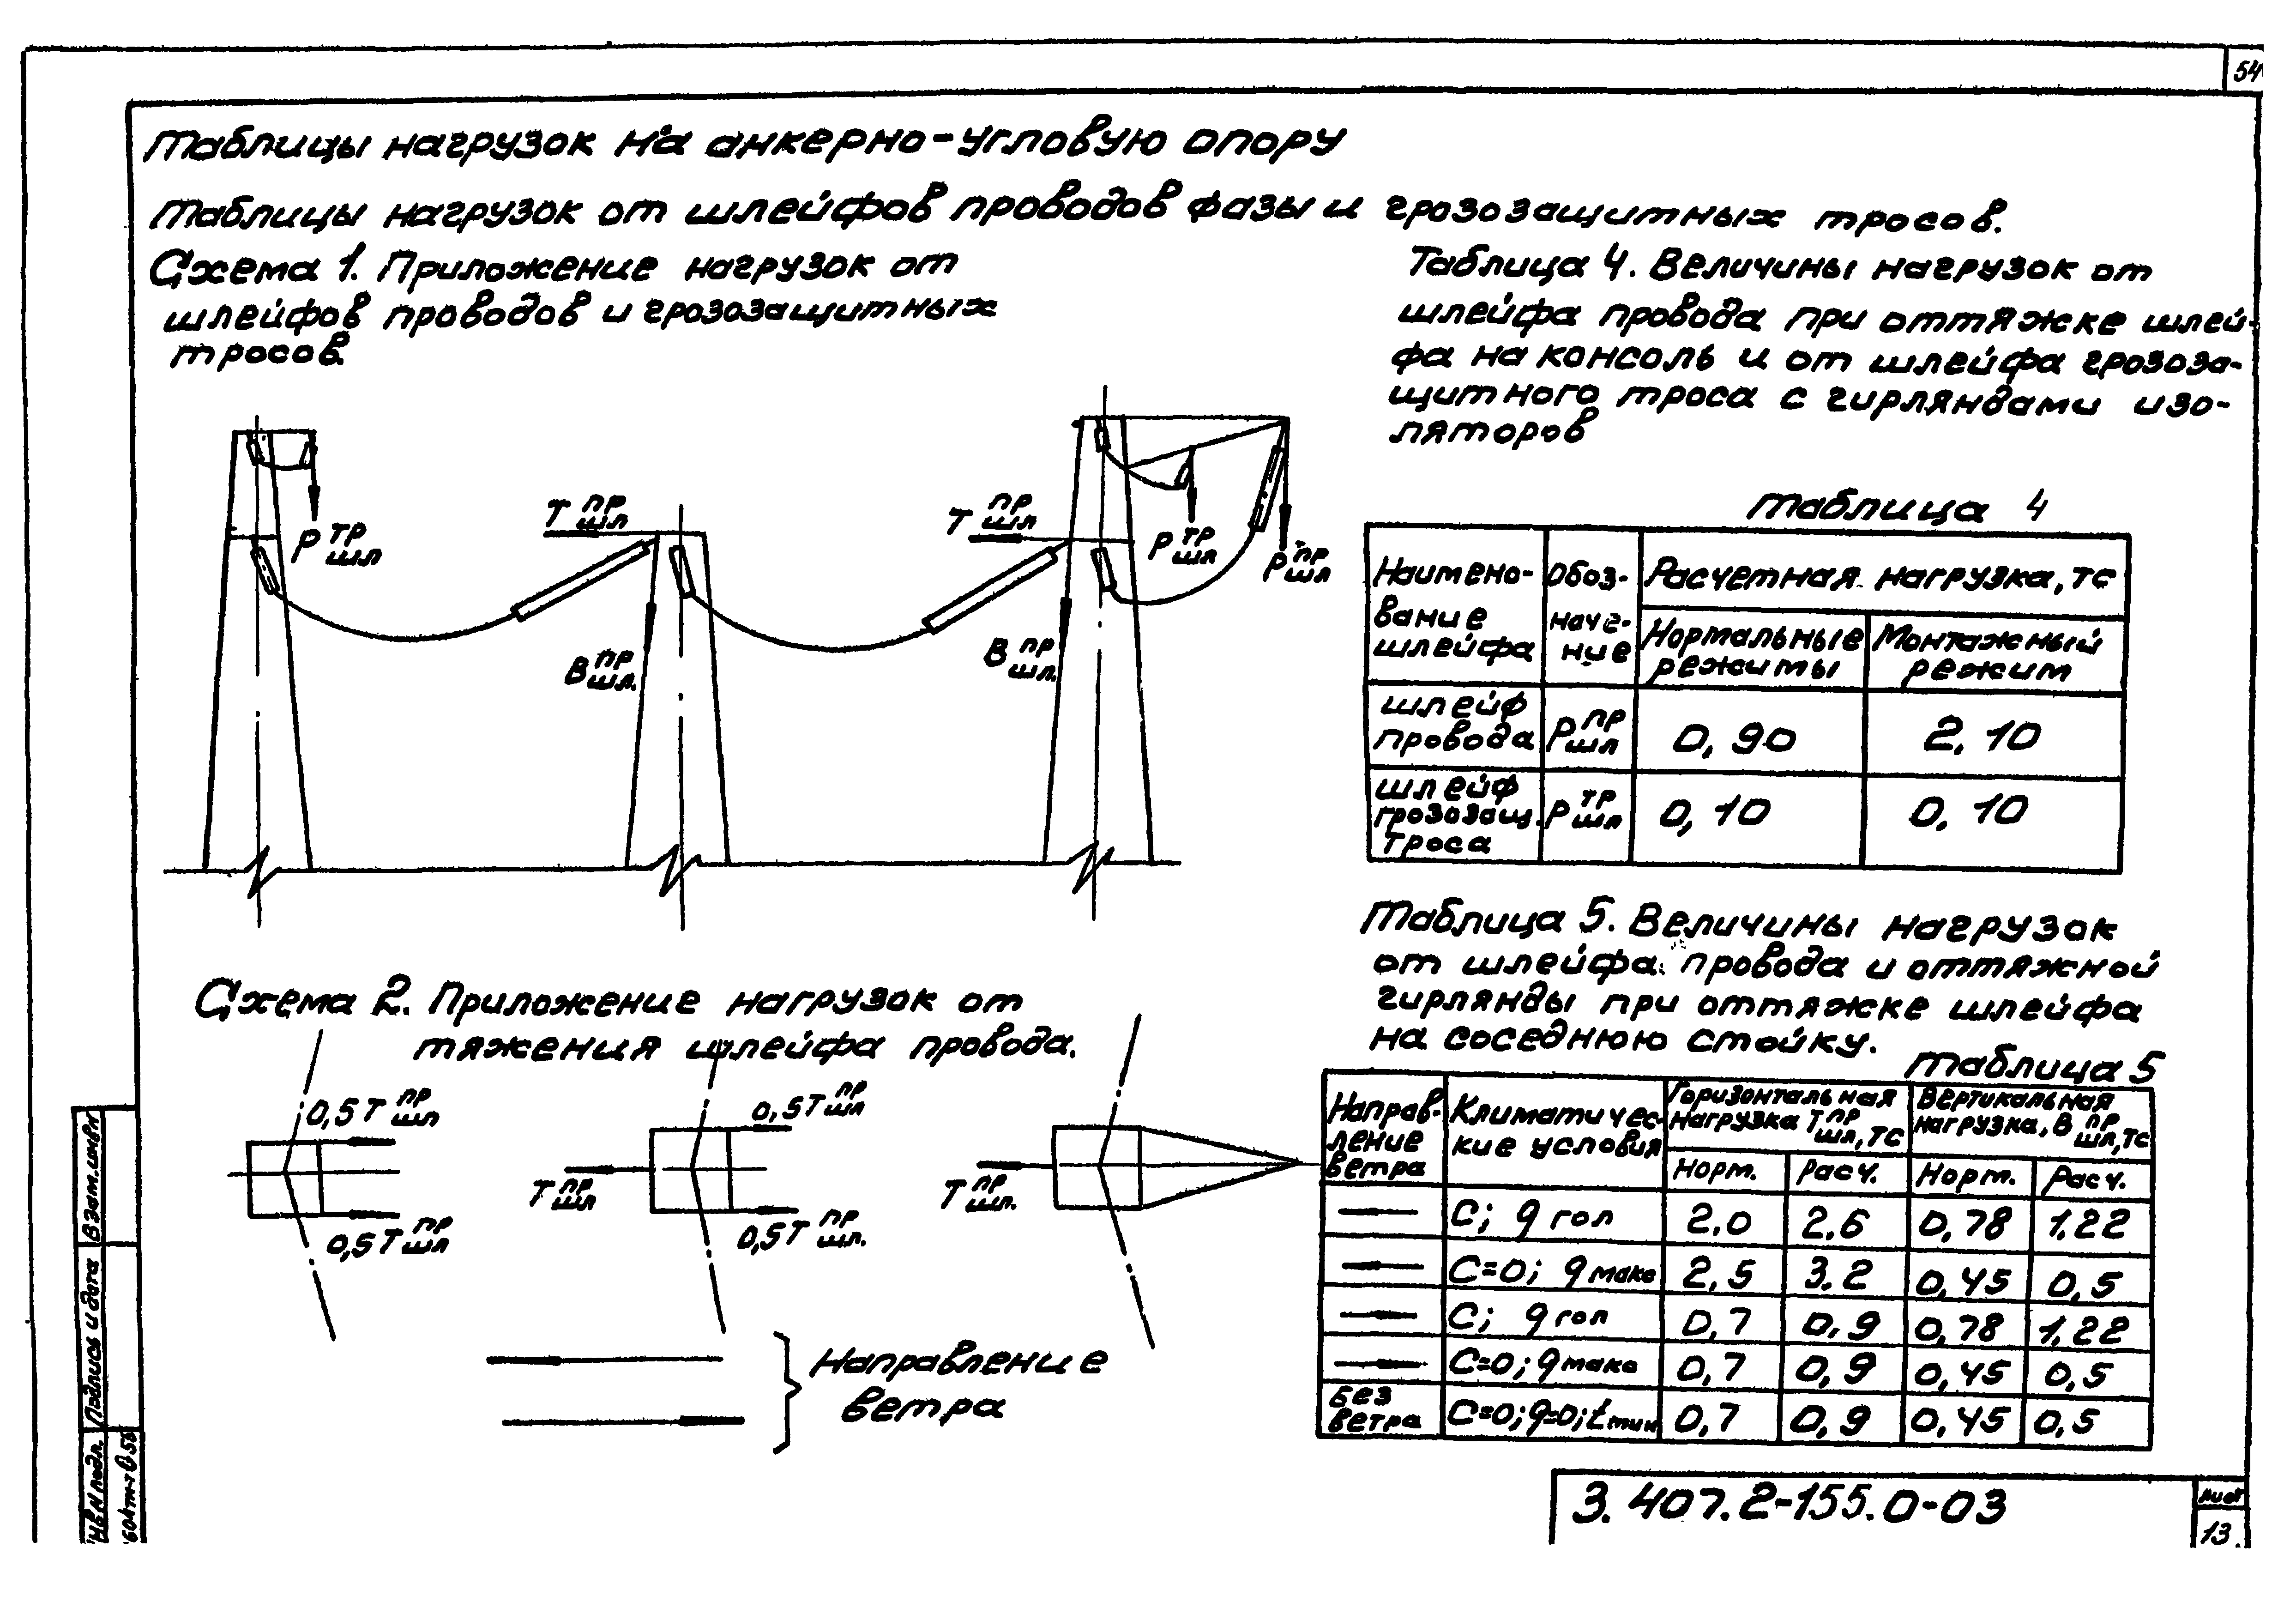 54
Таблицы нагрузок на анкерно-угловую опору
Таблицы нагрузок от шлейфов проводов фазы и грозозащитных тросов.
Схема 1. Приложение нагрузок от
шлейфов проводов и грозозащитных
тросов.
Таблица 4. Величины нагрузок от
шлейфа провода при оттяжке шлей-
фа на консоль и от шлейфа грозоза-
щитного троса с гирляндами изо-
ляторов
P тр шл
T пр шл
B пр шл.
T пр шл
B пр шл.
P тр шл
P пр шл
Таблица 4
Наимено-
вание
шлейфа
Обоз-
наче-
ние
Расчетная нагрузка, тс
Нормальные
режимы
Монтажный
режим
шлейф
провода
P пр шл
0,90
2,10
шлейф
грозозащ.
троса
P тр шл
0,10
0,10
Схема 2. Приложение нагрузок от
тяжения шлейфа провода.
0,5 T пр шл
0,5 T пр шл
T пр шл
0,5 T пр шл
0,5 T пр шл.
T пр шл.
Направление
ветра
Таблица 5. Величины нагрузок
от шлейфа провода и оттяжной
гирлянды при оттяжке шлейфа
на соседнюю стойку.
Таблица 5
Направ-
ление
ветра
Климатичес-
кие условия
Горизонтальная
нагрузка T пр шл, тс
Вертикальная
нагрузка, B пр шл, тс
Норм.
Расч.
Норм.
Расч.
C; q гол 2,0 2,6 0,78 1,22
C=0; q макс 2,5 3,2 0,45 0,5
C; q гол 0,7 0,9 0,78 1,22
C=0; q макс 0,7 0,9 0,45 0,5
Без
ветра
C=0; q=0; t мин 0,7 0,9 0,45 0,5
Взам. инв №
Подпись и дата
Инв № подл.
3.407.2-155.0-03
Лист
13